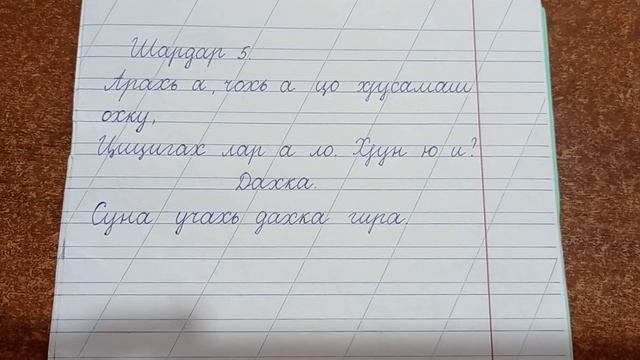 Шардар 5.
Арахь а, чохь а цо хӏусамаш
охку,
Цицигах лар а ло. Хӏун ю и?
Дахка.
Суна учахь дахка гира.